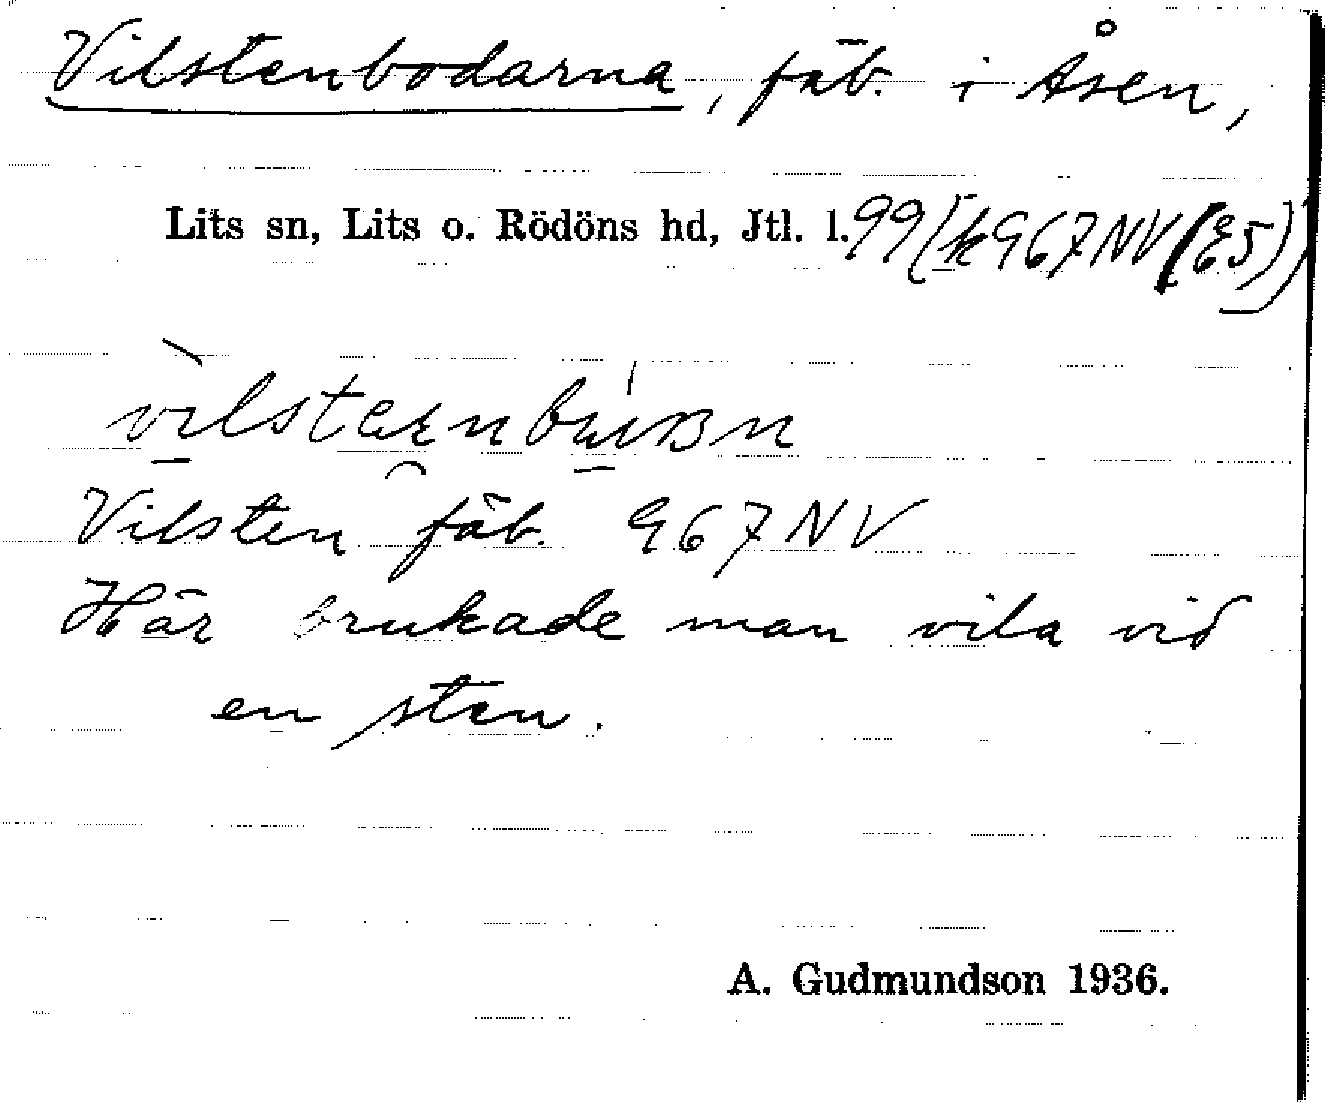 Vilstenbodarna, fäb. i Åsen,
Lits sn, Lits o. Rödöns hd, Jtl. l. 99 (k 967 NV (E5))
Vilsten fäb. 967 NV
Här brukade man vila vid
en sten.
A. Gudmundson 1936.